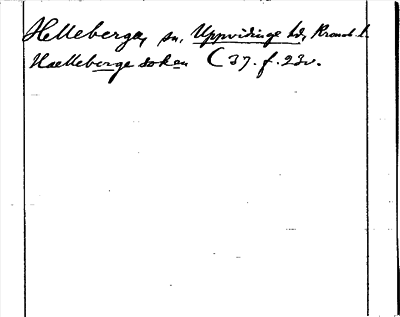 Helleberga, sn, Uppvidinge hd, Kronob. l.
Haelleberge soken C 37. f. 23v.